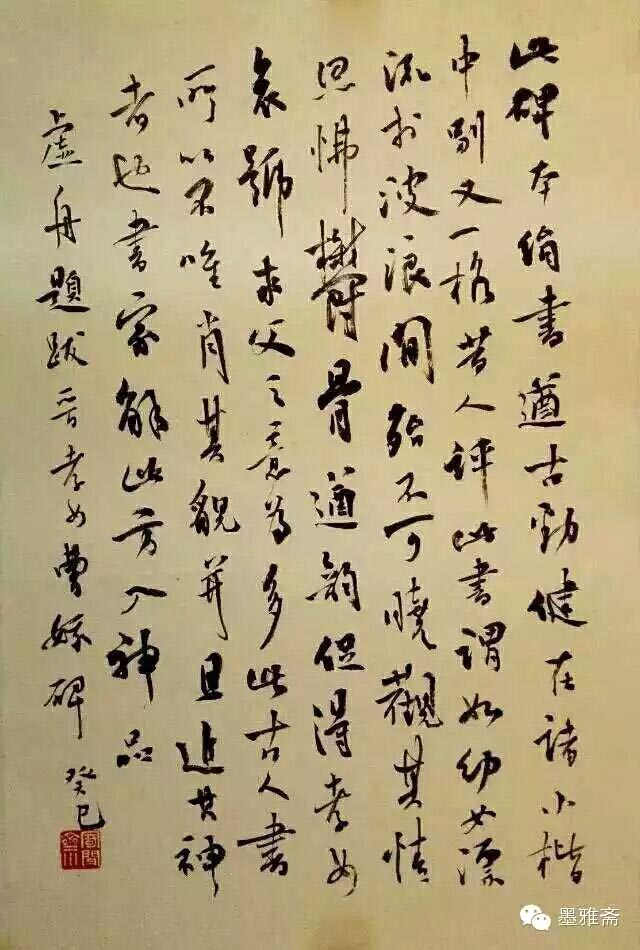 此碑本绢書遒古勁健在諸小楷
中別又一格昔人評此書謂如幼女漂
流於波浪間殆不可曉觀其情
思怫鬱骨遒韵促得孝女
哀號求父之意為多此古人書
所以不唯肖其貌并且追其神
者也書家解此方入神品
虛舟題跋晉孝女曹娥碑 癸巳
墨雅斋